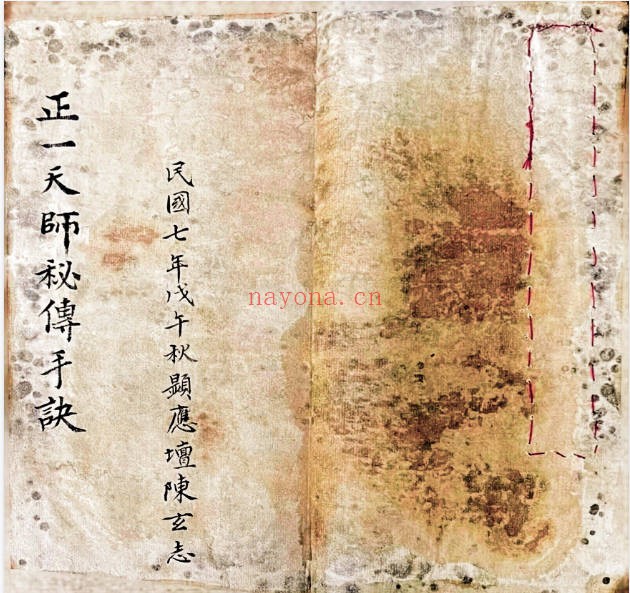 民國七年戊午秋顯應壇陳玄志
正一天師秘傳手訣
nayona.cn